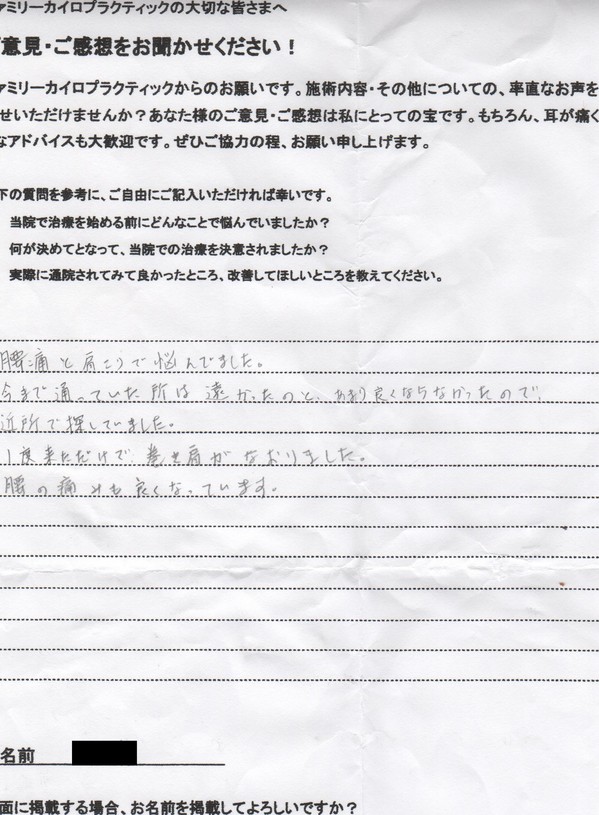 ァミリーカイロプラクティックの大切な皆さまへ
意見・ご感想をお聞かせください！
ァミリーカイロプラクティックからのお願いです。施術内容・その他についての、率直なお声を
せいただけませんか？あなた様のご意見・ご感想は私にとっての宝です。もちろん、耳が痛く
なアドバイスも大歓迎です。ぜひご協力の程、お願い申し上げます。
下の質問を参考に、ご自由にご記入いただければ幸いです。
当院で治療を始める前にどんなことで悩んでいましたか？
何が決めてとなって、当院での治療を決意されましたか？
実際に通院されてみて良かったところ、改善してほしいところを教えてください。
腰痛と肩こりで悩んでました。
今まで通っていた所は遠かったのと、あまり良くならなかったので
近所で探していました。
1度来ただけで巻き肩がなおりました。
腰の痛みも良くなっています。
名前
面に掲載する場合、お名前を掲載してよろしいですか？